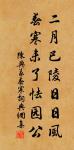 二月巴陵日日風
春寒未了怯園公
陳與義春寒詞典網書